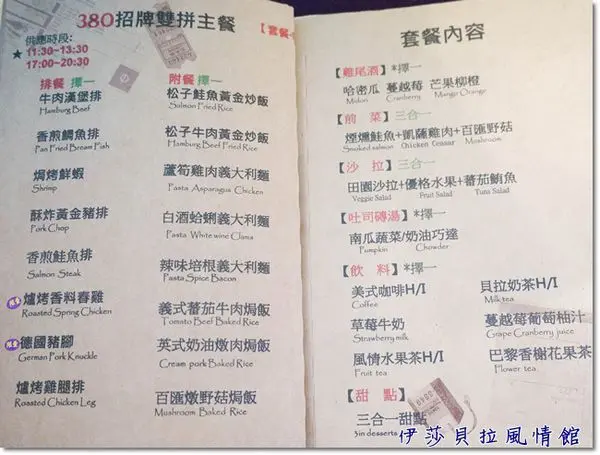 380招牌雙拼主餐
供應時段:
★ 11:30~13:30
17:00~20:30
【套餐
排餐 擇一
牛肉漢堡排
Hamburg Beef
香煎鯛魚排
Pan Fried Bream Fish
焗烤鮮蝦
Shrimp
酥炸黃金豬排
Pork Chop
香煎鮭魚排
Salmon Steak
爐烤香料春雞
Roasted Spring Chicken
德國豬腳
German Pork Knuckle
爐烤雞腿排
Roasted Chicken Leg
附餐 擇一
松子鮭魚黃金炒飯
Salmon Fried Rice
松子牛肉黃金炒飯
Hamburg Beef Fried Rice
蘆筍雞肉義大利麵
Pasta Asparagus Chicken
白酒蛤蜊義大利麵
Pasta White wine Clams
辣味培根義大利麵
Pasta Spice Bacon
義式蕃茄牛肉焗飯
Tomato Beef Baked Rice
英式奶油燉肉焗飯
Cream pork Baked Rice
百匯燉野菇焗飯
Mushroom Baked Rice
套餐內容
【雞尾酒】*擇一
哈密瓜 蔓越莓 芒果柳橙
Midon Cranberry Mango Orange
【前 菜】三合一
煙燻鮭魚+凱薩雞肉+百匯野菇
Smoked salmon Chicken Ceasar Mushroom
【沙 拉】三合一
田園沙拉+優格水果+蕃茄鮪魚
Veggie Salad Fruit Salad Tuna Salad
【吐司磚湯】*擇一
南瓜蔬菜/奶油巧達
Pumpkin Chowder
【飲 料】*擇一
美式咖啡H/I 貝拉奶茶H/I
Coffee Milk tea
草莓牛奶 蔓越莓葡萄柚汁
Strawberry milk Grape Cranberry juice
風情水果茶H/I 巴黎香榭花果茶
Fruit tea Flower tea
【甜 點】
三合一甜點
3in desserts
伊莎貝拉風情館